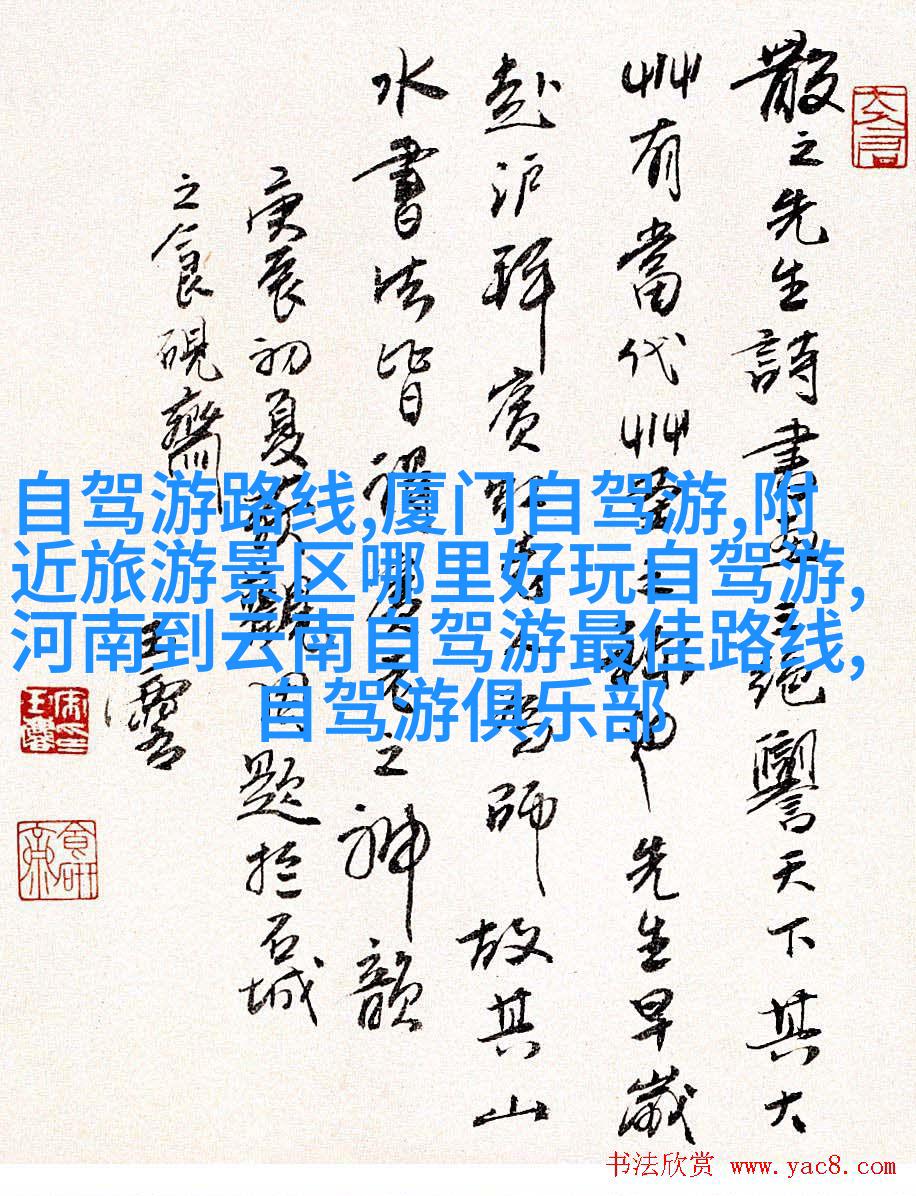 散之先生詩書畫三絕譽天下其大
艸有當代艸聖之稱 先生早歲
赴沪拜賓虹老人為師故其山
水書法皆得賓老之神韻
庚辰初夏敬觀因題於石城
之食硯齋
自驾游路线,厦门自驾游,附
近旅游景区哪里好玩自驾游,
河南到云南自驾游最佳路线,
自驾游俱乐部
书法欣赏 www.yac8.com